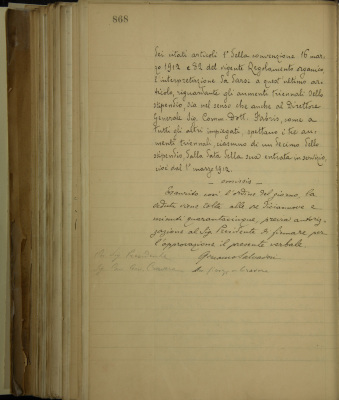 868
dei citati articoli 1° della convenzione 16 mar-
zo 1912 e 32 del vigente Regolamento organico,
l'interpretazione da darsi a quest'ultimo ar-
ticolo, riguardante gli aumenti triennali dello
stipendio, sia nel senso che anche al Direttore
Generale Sig. Comm. Dott. Fabris, come a
tutti gli altri impiegati spettano i tre au-
menti triennali, ciascuno di un decimo dello
stipendio, dalla data della sua entrata in servizio,
cioè dal 1° marzo 1912.
- omissis -
Esaurito così l'ordine del giorno, la
seduta viene tolta alle ore diciannove e
minuti quarantacinque, previa autoriz-
zazione al Sig. Presidente di firmare per
l'approvazione il presente verbale.